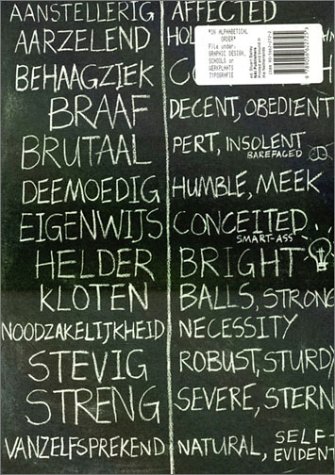 AANSTELLERIG AFFECTED
AARZELEND
BEHAAGZIEK
BRAAF DECENT, OBEDIENT
BRUTAAL PERT, INSOLENT
BAREFACED
DEEMOEDIG HUMBLE, MEEK
EIGENWIJS CONCEITED
SMART-ASS
HELDER BRIGHT
KLOTEN BALLS, STRONG
NOODZAKELIJKHEID NECESSITY
STEVIG ROBUST, STURD
STRENG SEVERE, STERN
VANZELFSPREKEND NATURAL, SELF-
EVIDEN
"IN ALPHABETICAL
ORDER"
File under:
GRAPHIC DESIGN,
SCHOOLS or
WERKPLAATS
TYPOGRAFIE